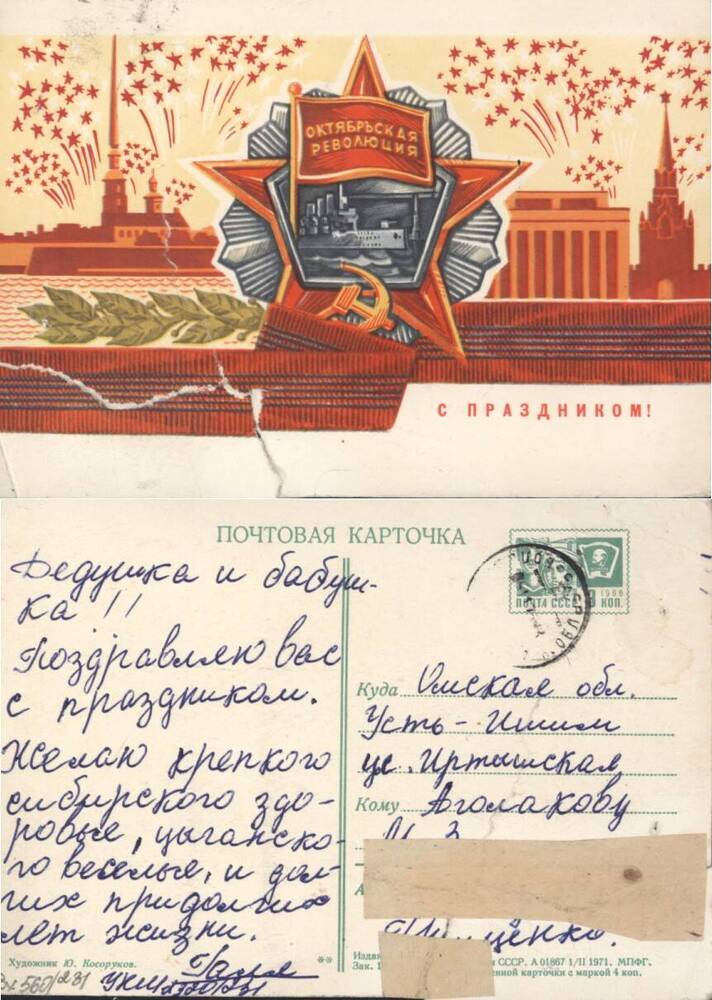 ОКТЯБРЬСКАЯ
РЕВОЛЮЦИЯ
С ПРАЗДНИКОМ!
ПОЧТОВАЯ КАРТОЧКА
Дедушка и бабуш-
ка !!
Поздравляю вас
с праздником.
Желаю крепкого
сибирского здо-
ровье, цыганско-
го веселье, и дол-
гих придолгих
лет жизни.
Галя
ПОЧТА СССР
1966
КОП.
Куда Омская обл.
Усть-Ишим
ул. Иртышская
Кому Аголакову
Художник Ю. Косоруков.
**
СССР. А 01867 1/II 1971. МПФГ.
Зак.
енной карточки с маркой 4 коп.
560/231